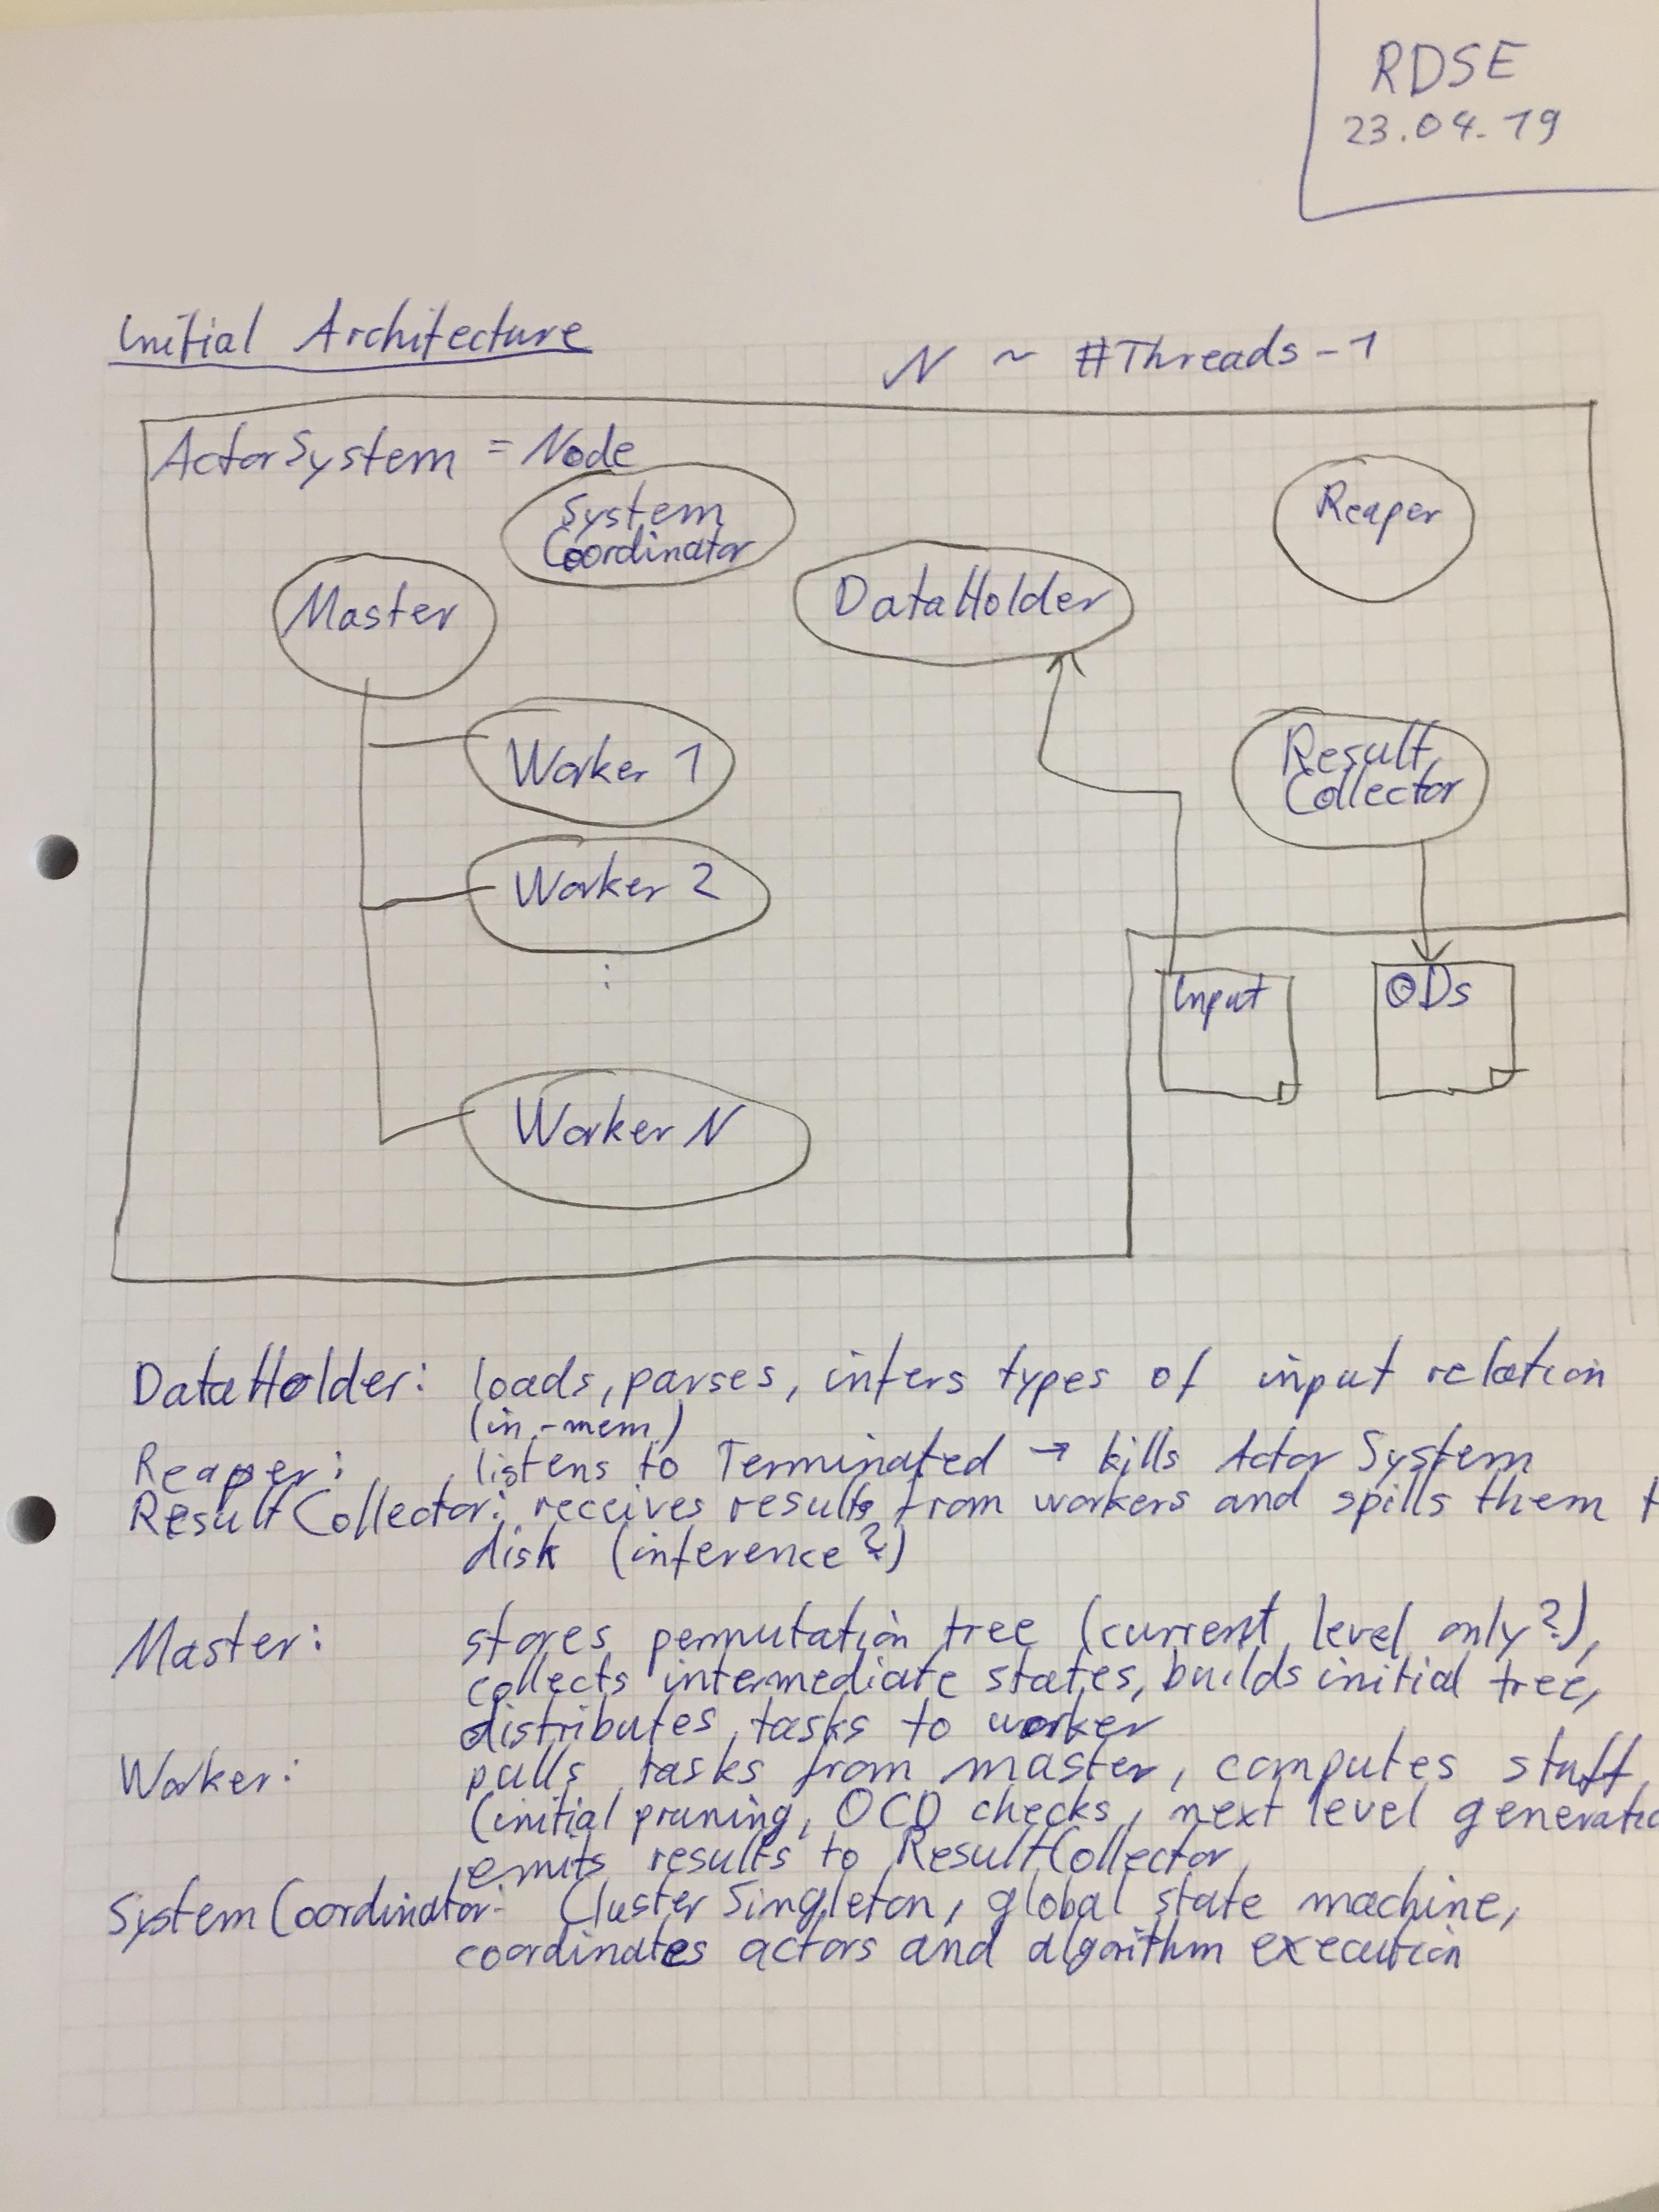 RDSE
23.04.19
Initial Architecture
N ~ #Threads-1
ActorSystem = Node
System
Coordinator
Reaper
Master
DataHolder
Worker 1
Result
Collector
Worker 2
:
Input
ODs
Worker N
DataHolder: loads, parses, infers types of input relation
(in-mem)
Reaper: listens to Terminated → kills Actor System
ResultCollector: receives results from workers and spills them t
disk (inference?)
Master: stores permutation tree (current level only?),
collects intermediate states, builds initial tree,
distributes tasks to worker
Worker: pulls tasks from master, computes stuff,
(initial pruning, OCD checks, next level generatio
emits results to ResultCollector
System Coordinator: Cluster Singleton, global state machine,
coordinates actors and algorithm execution